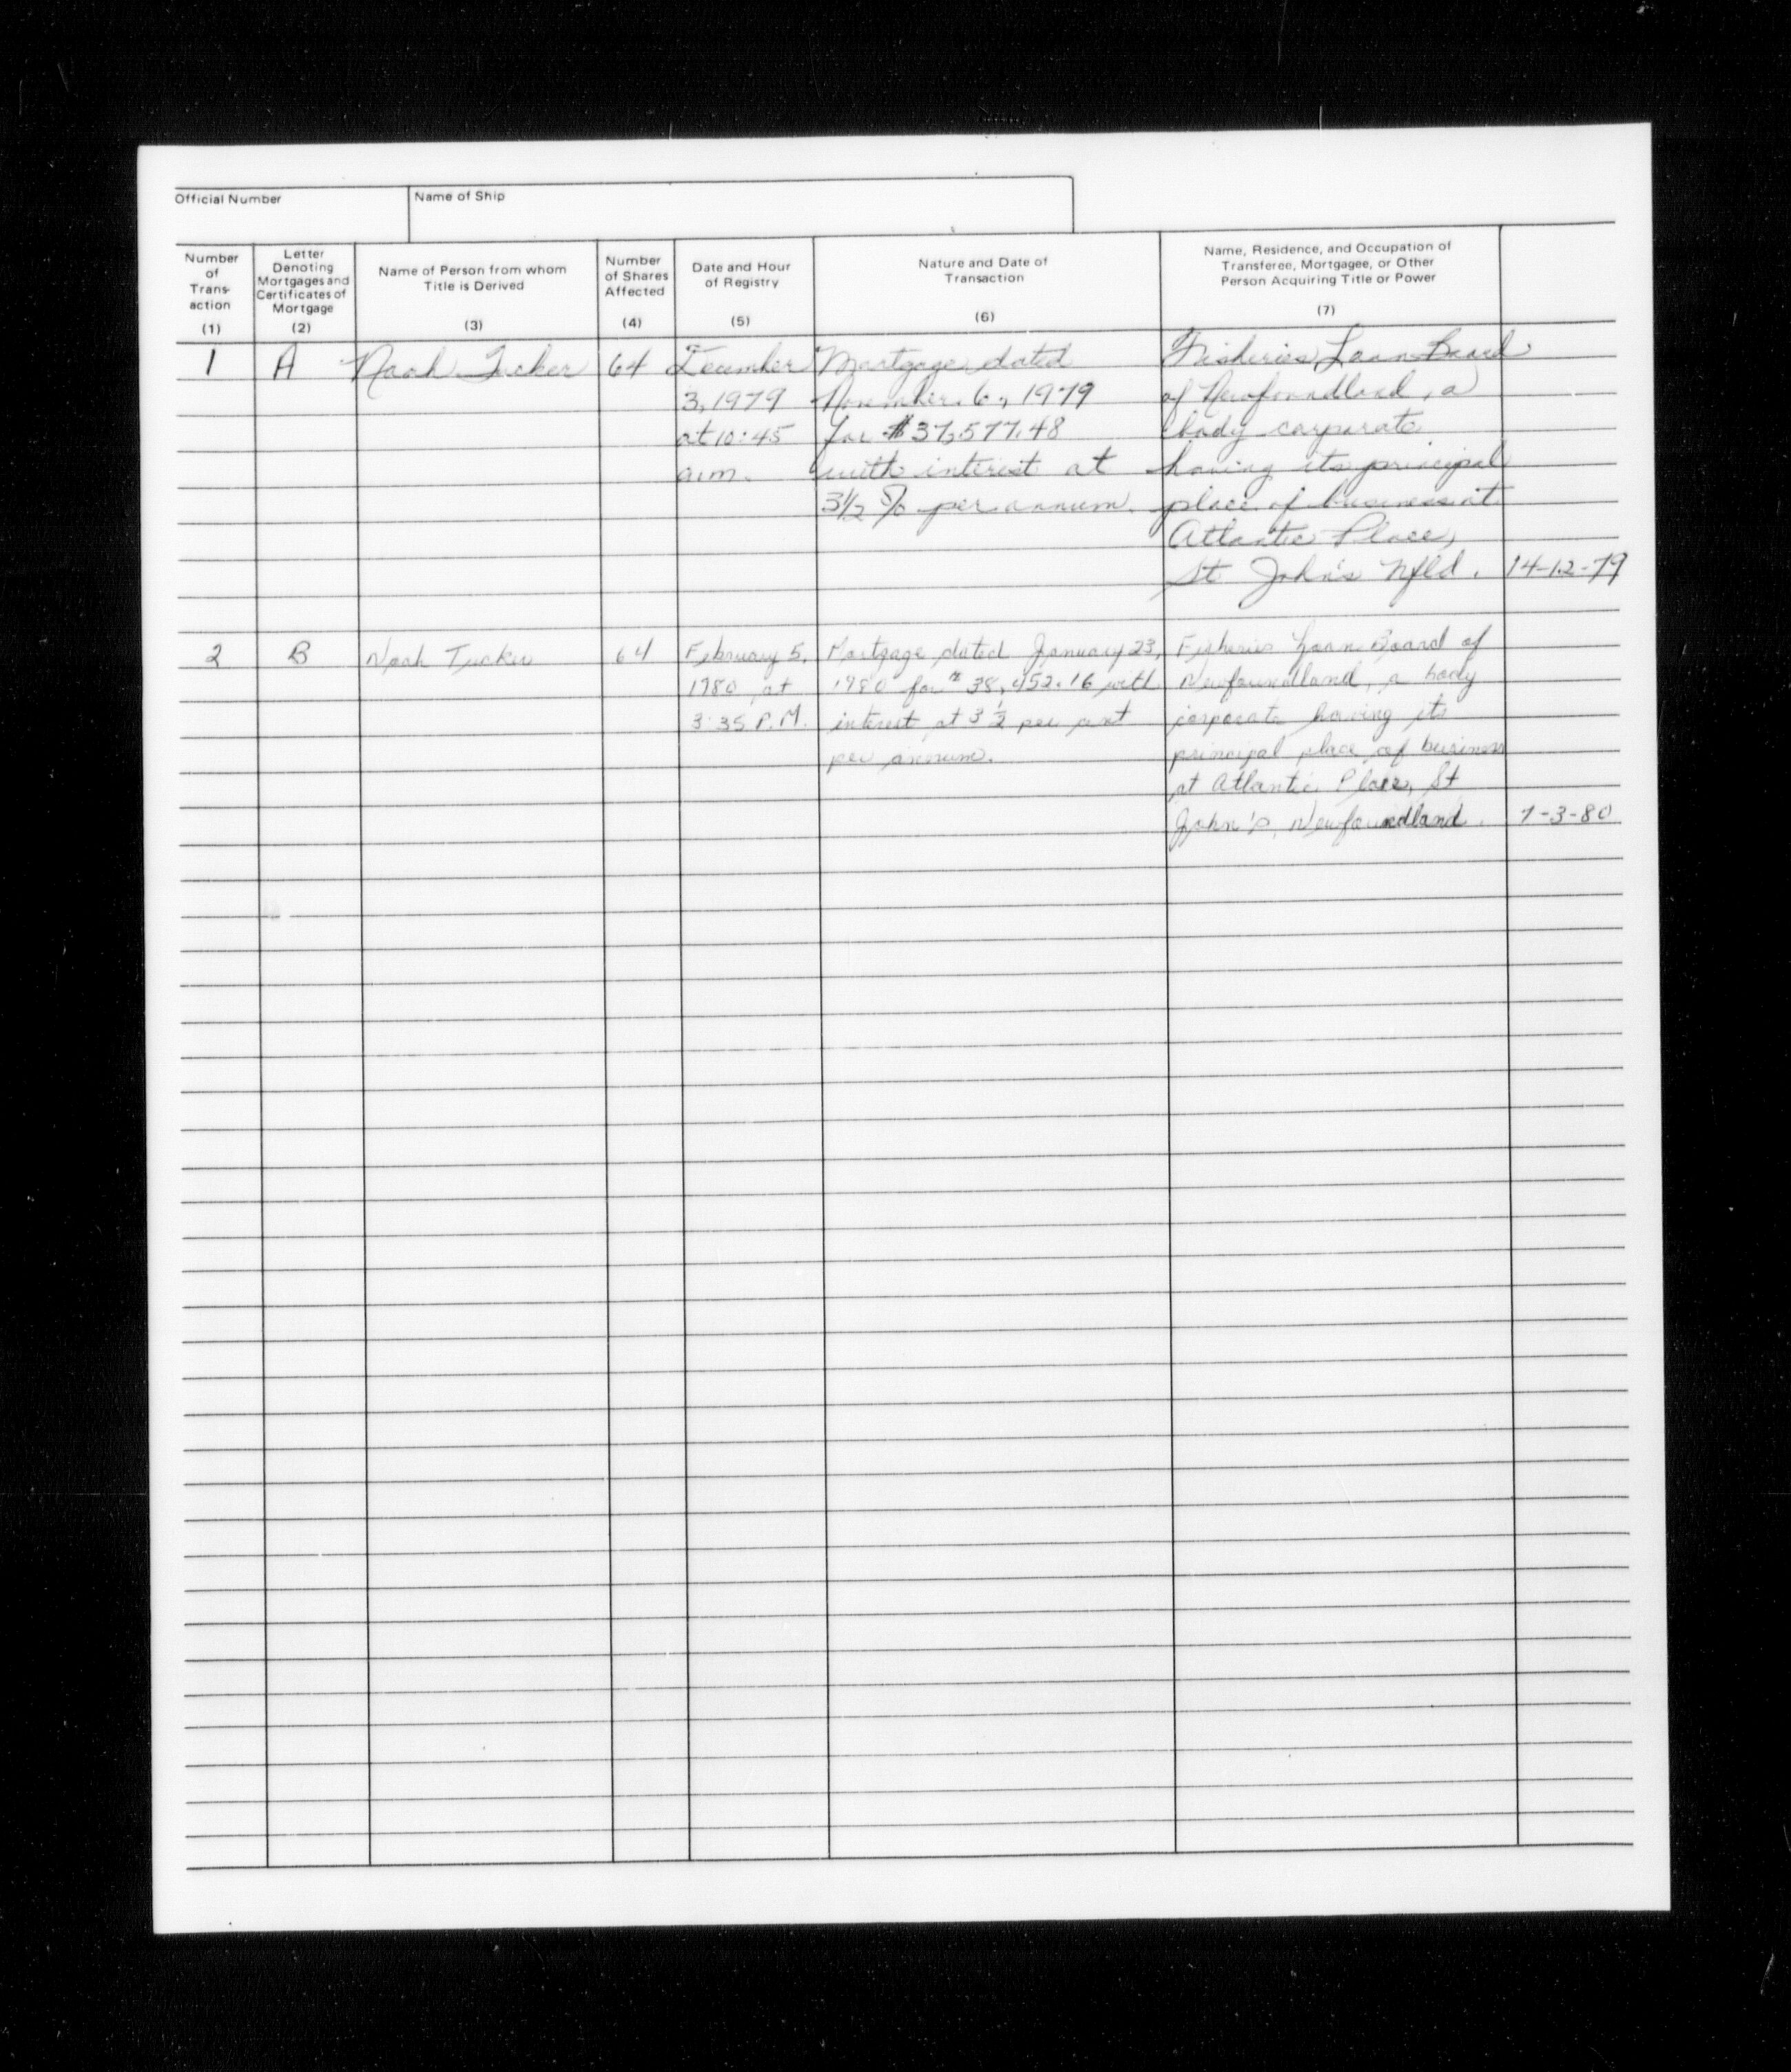 Official Number
Name of Ship
Number of Trans- action (1)
Letter Denoting Mortgages and Certificates of Mortgage (2)
Name of Person from whom Title is Derived (3)
Number of Shares Affected (4)
Date and Hour of Registry (5)
Nature and Date of Transaction (6)
Name, Residence, and Occupation of Transferee, Mortgagee, or Other Person Acquiring Title or Power (7)
1 A Noah Tucker 64 December Mortgage dated Fisheries Loan Board
3, 1979 November 6, 1979 of Newfoundland, a
at 10:45 for $37,577.48 body corporate
a.m. with interest at having its principal
3 1/2 % per annum. place of business at
Atlantic Place,
St John's Nfld. 14-12-79
2 B Noah Tucker 64 February 5, Mortgage dated January 23, Fisheries Loan Board of
1980 at 1980 for $38,452.16 with Newfoundland, a body
3:35 P.M. interest at 3 1/2 per cent corporate having its
per annum. principal place of business
at Atlantic Place, St
John's, Newfoundland. 7-3-80